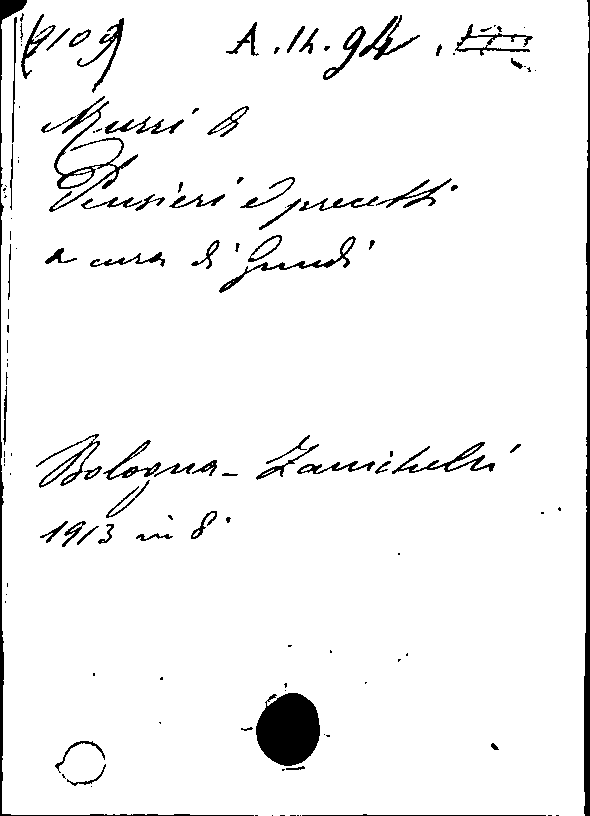 9109 A.14.94.
Murri A
Pensieri e precetti
a cura di Gnudi
Bologna - Zanichelli
1913 in 8°